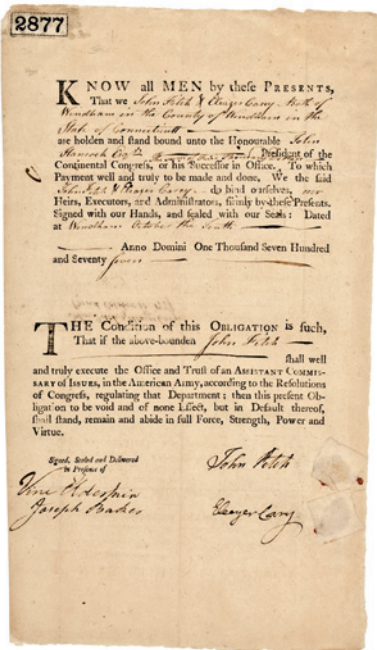 2877
KNOW all MEN by these PRESENTS,
That we John Fitch & Eleazer Cary Both of
Windham in the County of Windham in the
State of Connecticutt
are holden and stand bound unto the Honourable John
Hancock Esqr President of the
Continental Congress, or his Successor in Office. To which
Payment well and truly to be made and done. We the said
John Fitch & Eleazer Carey do bind ourselves, our
Heirs, Executors, and Administrators, firmly by these Presents.
Signed with our Hands, and sealed with our Seals: Dated
at Windham October the Tenth
Anno Domini One Thousand Seven Hundred
and Seventy seven
THE Condition of this OBLIGATION is such,
That if the above-bounden John Fitch
shall well
and truly execute the Office and Trust of an ASSISTANT COMMIS-
SARY of ISSUES, in the American Army, according to the Resolutions
of Congress, regulating that Department: then this present Ob-
ligation to be void and of none Effect, but in Default thereof,
shall stand, remain and abide in full Force, Strength, Power and
Virtue.
Signed, Sealed and Delivered
in Presence of
John Fitch
Vine Elderkin
Joseph Baker
Eleazer Cary